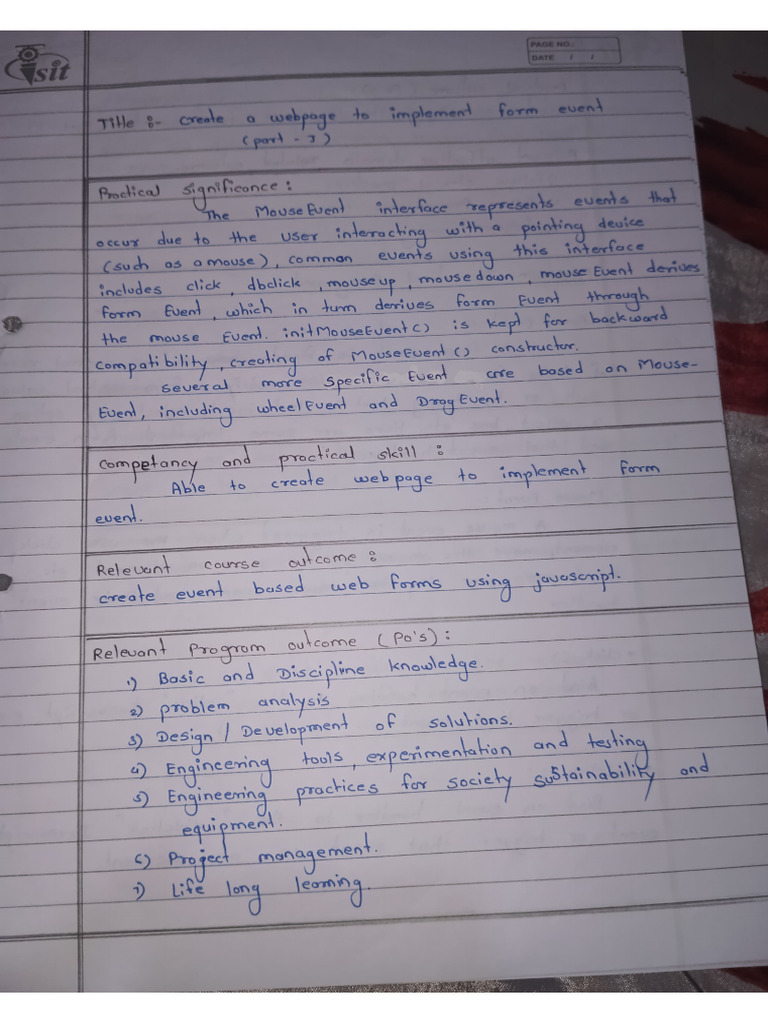 isit
PAGE NO.:
DATE / /
Title :- create a webpage to implement form event
(part - I)
Practical significance :
The MouseEvent interface represents events that
occur due to the user interacting with a pointing device
(such as a mouse), common events using this interface
includes click, dbclick, mouseup, mousedown, mouse Event derives
form Event, which in turn derives form Event through
the mouse Event. initMouseEvent() is kept for backward
compatibility, creating of MouseEvent() constructor.
Several more specific Event are based on Mouse-
Event, including wheelEvent and DragEvent.
Competancy and practical skill :
Able to create webpage to implement form
event.
Relevant course outcome :
create event based web forms using javascript.
Relevant Program outcome (PO's) :
1) Basic and Discipline knowledge.
2) problem analysis
3) Design / Development of solutions.
4) Engineering tools, experimentation and testing
5) Engineering practices for society sustainability and
equipment.
6) Project management.
7) Life long learning.